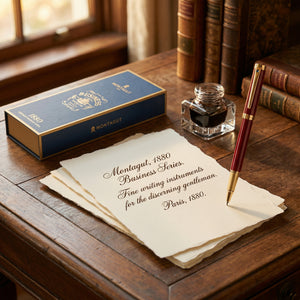 1880
MONTAGUT
Montagut, 1880
Business Series.
Fine writing instruments
for the discerning gentleman.
Paris, 1880.